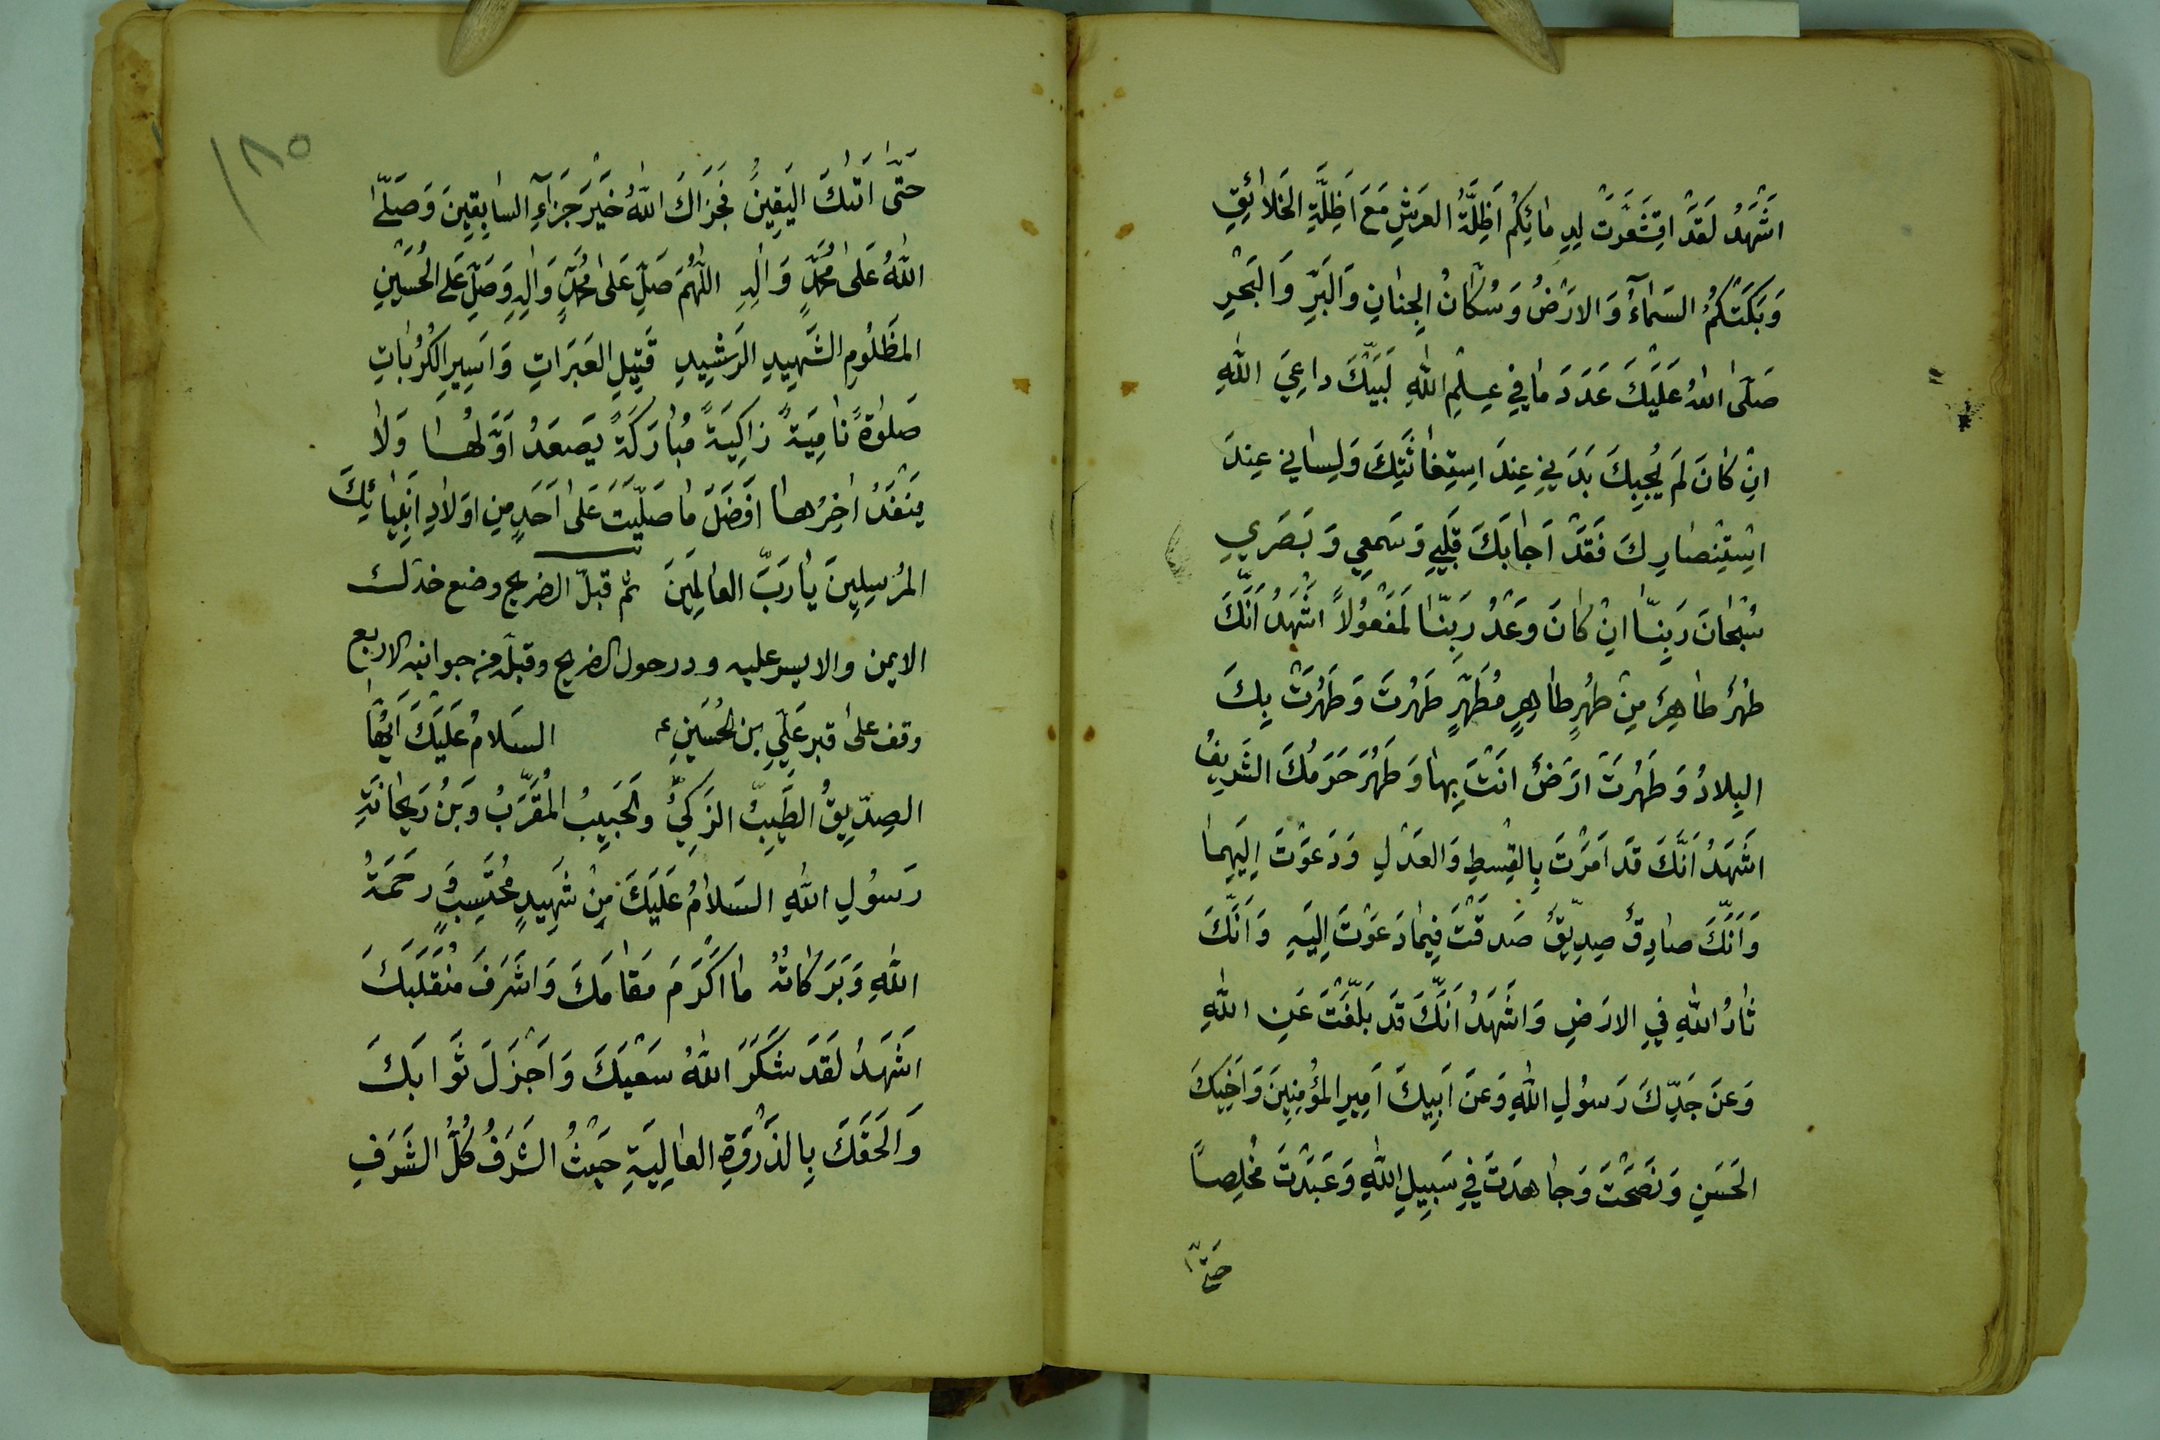 اَشْهَدُ لَقَدْ اقْشَعَرَّتْ لِدِمٰائِكُمْ اَظِلَّةُ العَرْشِ مَعَ اَظِلَّةِ الخَلائِقِ
وَبَكَتْكُمُ السَمٰآءُ وَالارَضُ وَسُكّٰانُ الجِنٰانِ وَالبَرِّ وَالبَحْرِ
صَلَّى اللهُ عَلَيْكَ عَدَدَ مٰا فِي عِلْمِ اللهِ لَبَّيْكَ داعِيَ اللهِ
اِنْ كٰانَ لَمْ يُجِبكَ بَدَنِي عِندَ اسِتِغٰاثَتِكَ وَلِسٰانِي عِندَ
اسْتِنْصٰارِكَ فَقَدْ اَجٰابَكَ قَلْبِي وَسَمعِي وَبَصَرِي
سُبْحٰانَ رَبِنّٰا انِ كٰانَ وَعْدُ رَبِنّٰا لَمَفْعُولاً اشْهَدُ اَنَّكَ
طُهْرٌ طٰاهِرٌ مِنْ طُهْرٍ طٰاهِرٍ مُطَهَّرٍ طَهُرْتَ وَطَهُرَتْ بِكَ
البِلادُ وَطَهُرَتْ ارَضٌ انَتْ بِهٰا وَطَهُرَ حَرَمُكَ الشَرِيفُ
اشَهَدُ اَنَّكَ قَدْ اَمَرْتَ بِالقِسْطِ وَالعَدْلِ وَدَعَوْتَ اِلَيهِمٰا
وَاَنَّكَ صٰادِقٌ صِدّيِقٌ صَدَقْتَ فِيمٰا دَعَوْتَ اِلَيهِ وَاَنَّكَ
ثٰارُ اللهِ فِي الارَضِ وَاشَهَدُ اَنَّكَ قَدْ بَلَّغْتَ عَنِ اللهِ
وَعَنْ جَدِّكَ رَسُولِ اللهِ وَعَنْ اَبِيكَ اَمِيرِ المُؤْمِنِينَ وَاَخِيكَ
الحَسَنِ وَنَصَحْتَ وَجٰاهَدَتَ فِي سَبِيلِ اللهِ وَعَبَدْتَ مُخْلِصاً
حَتّٰى
١٨٠
حَتّٰى اَتٰىكَ اليَقِينُ فَجَزاكَ اللهُ خَيْرَ جَزٰآءِ السٰابِقِينَ وَصَلَّى
اللهُ عَلىٰ مُحَمَّدٍ وَالِهِ اللّٰهُمَ صَلِّ عَلىٰ مُحَمَّدٍ وَالِهِ وَصَلِّ عَلَى الحُسَيْنِ
المَظْلُومِ الشَهِيدِ الرَشِيدِ قَتِيلِ العَبَرَاتِ وَاَسِيرِ الكُرُبٰاتِ
صَلوٰةً نٰامِيَةً زاكِيَةً مُبٰارَكَةً يَصعَدُ اَوَّلُهٰا وَلٰا
يَنْفَدُ اٰخِرُهٰا اَفْضَلَ مٰا صَلَّيْتَ عَلىٰ اَحَدٍ مِنِ اوَلاٰدِ اَنْبِيٰائِكَ
المُرْسِلِينَ يٰا رَبَّ العٰالَمِينَ ثم قبّل الضريح وضع خدّك
الايمن والايسر عليه ودر حول الضريح وقبلّه من جوانبه الاربع
وقف علىٰ قبر عَلِيِّ بن الحُسَينِ ع السَلامُ عَلَيْكَ اَيُّهٰا
الصِدّيِقُ الطَيِّبُ الزَكِيُّ وَالحَبِيبُ المُقَرَّبُ وَبْنُ رَيحٰانَةِ
رَسُولِ اللهِ السَلاٰمُ عَلَيْكَ مِنْ شَهِيدٍ مُحْتَسِبٍ وَرَحمَةُ
اللهِ وَبَرَكٰاتُهُ مٰا اَكْرَمَ مَقٰامَكَ وَاشَرَفَ مُنْقَلَبَكَ
اَشْهَدُ لَقَدْ شَكَرَ اللهُ سَعْيَكَ وَاَجْزَلَ ثَوٰابَكَ
وَالَحَقَكَ بِالذَرْوَةِ العٰالِيَةِ حَيْثُ الشَرَفُ كُلُّ الشَرَفِ